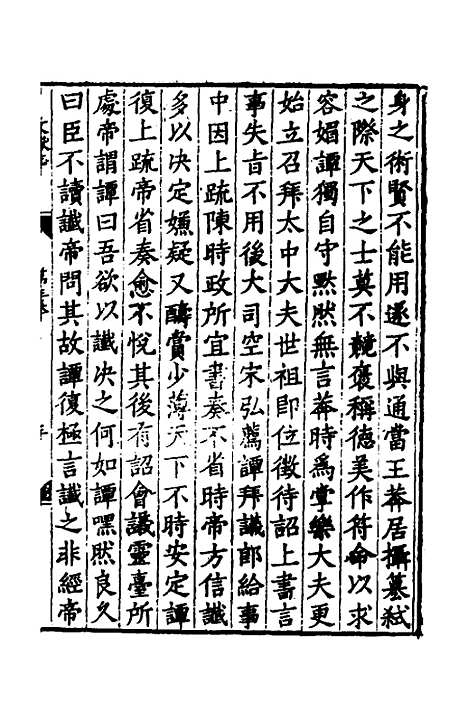 身之術賢不能用遂不與通當王莽居攝篡弒
之際天下之士莫不競褒稱德美作符命以求
容媚譚獨自守默然無言莽時爲掌樂大夫更
始立召拜太中大夫世祖即位徵待詔上書言
事失旨不用後大司空宋弘薦譚拜議郎給事
中因上疏陳時政所宜書奏不省時帝方信讖
多以決定嫌疑又酬賞少薄天下不時安定譚
復上疏帝省奏愈不悅其後有詔會議靈臺所
處帝謂譚曰吾欲以讖決之何如譚嘿然良久
曰臣不讀讖帝問其故譚復極言讖之非經帝